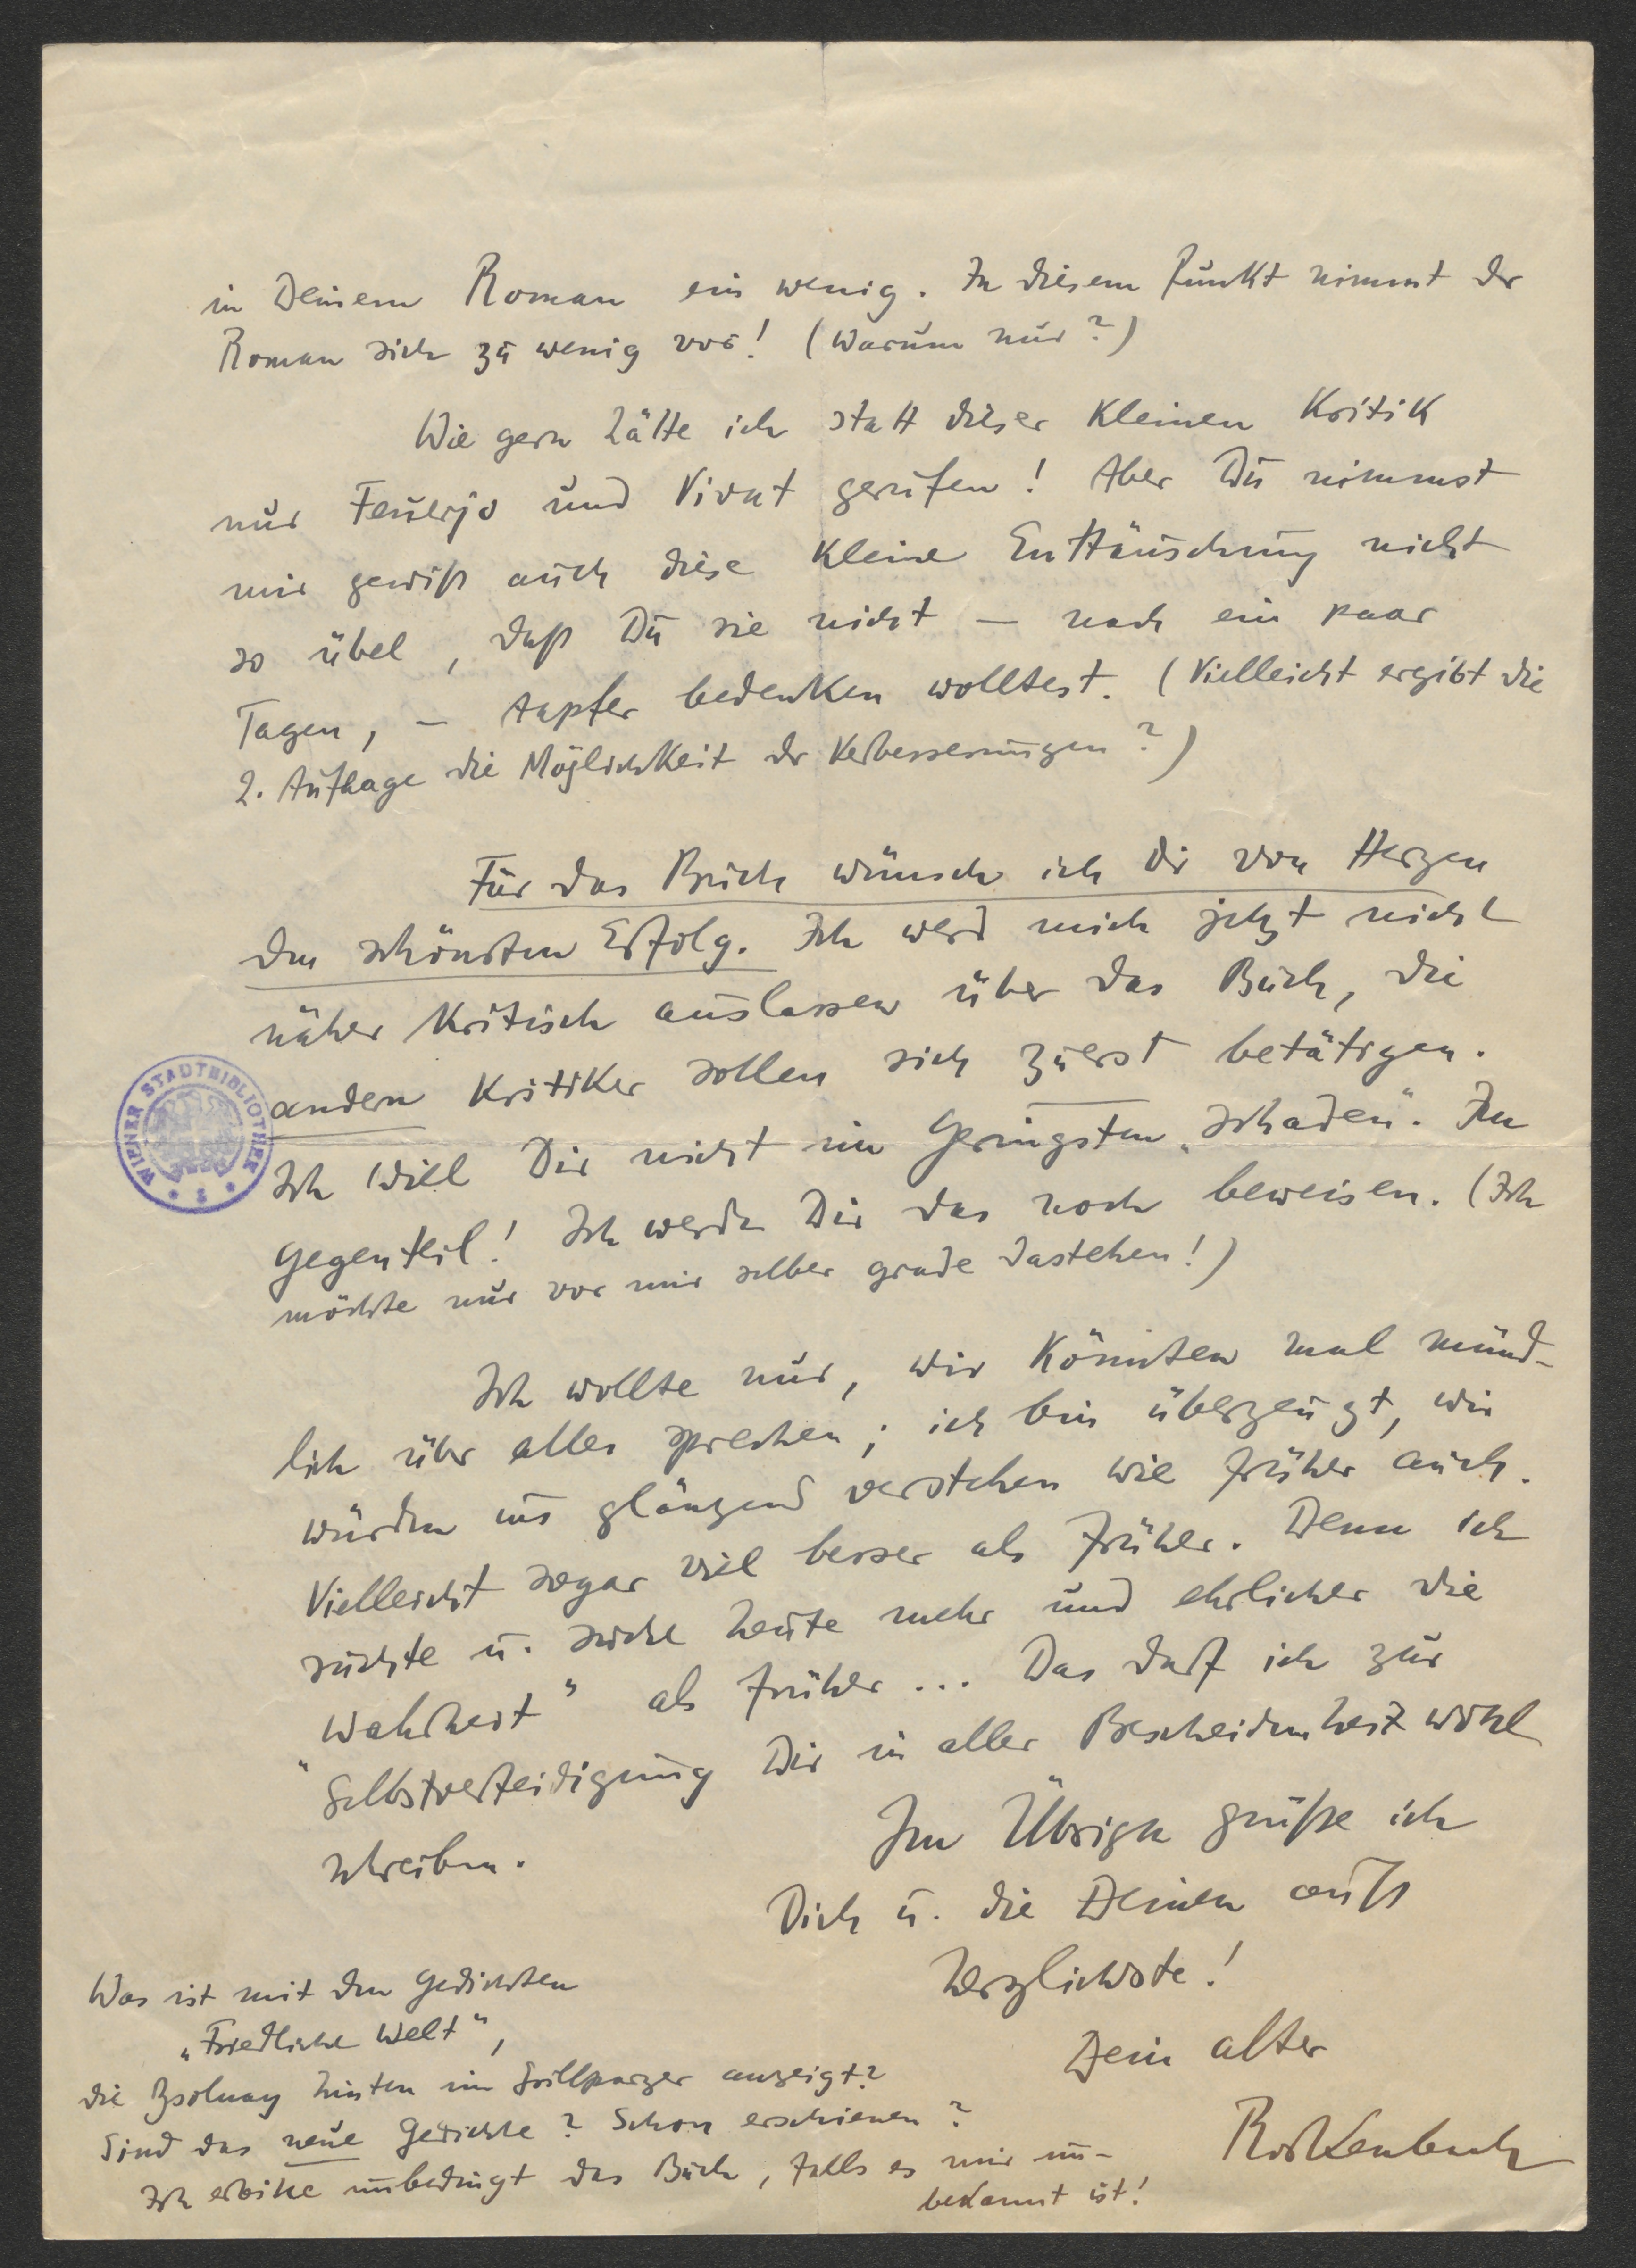 in Deinem Roman ein wenig. In diesem Punkt nimmt der
Roman sich zu wenig vor! (Warum nur?)
Wie gern hätte ich statt dieser kleinen Kritik
nur Feuerjo und Vivat gerufen! Aber Du nimmst
mir gewiß auch diese kleine Enttäuschung nicht
so übel, daß Du sie nicht – nach ein paar
Tagen, – tapfer bedenken wolltest. (Vielleicht ergibt die
2. Auflage die Möglichkeit der Verbesserungen?)
Für das Buch wünsch ich Dir von Herzen
den schönsten Erfolg. Ich werd mich jetzt nicht
näher kritisch auslassen über das Buch, die
andern Kritiker sollen sich zuerst betätigen.
Ich will Dir nicht im Geringsten „schaden“. Im
Gegenteil! Ich werde Dir das noch beweisen. (Ich
möchte nur vor mir selber grade dastehen!)
Ich wollte nur, wir könnten mal münd-
lich über alles sprechen; ich bin überzeugt, wir
würden uns glänzend verstehen wie früher auch.
Vielleicht sogar viel besser als früher. Denn ich
suchte u. suche heute mehr und ehrlicher die
„Wahrheit“ als früher... Das darf ich zur
Selbstverteidigung Dir in aller Bescheidenheit wohl
schreiben.
Im Übrigen grüße ich
Dich u. die Deinen aufs
Herzlichste!
Dein alter
Rockenbach
Was ist mit den Gedichten
„Friedliche Welt“,
die Zsolnay hinten im Grillparzer anzeigt?
Sind das neue Gedichte? Schon erschienen?
Ich erbitte unbedingt das Buch, falls es mir un-
bekannt ist!
WIENER STADTBIBLIOTHEK